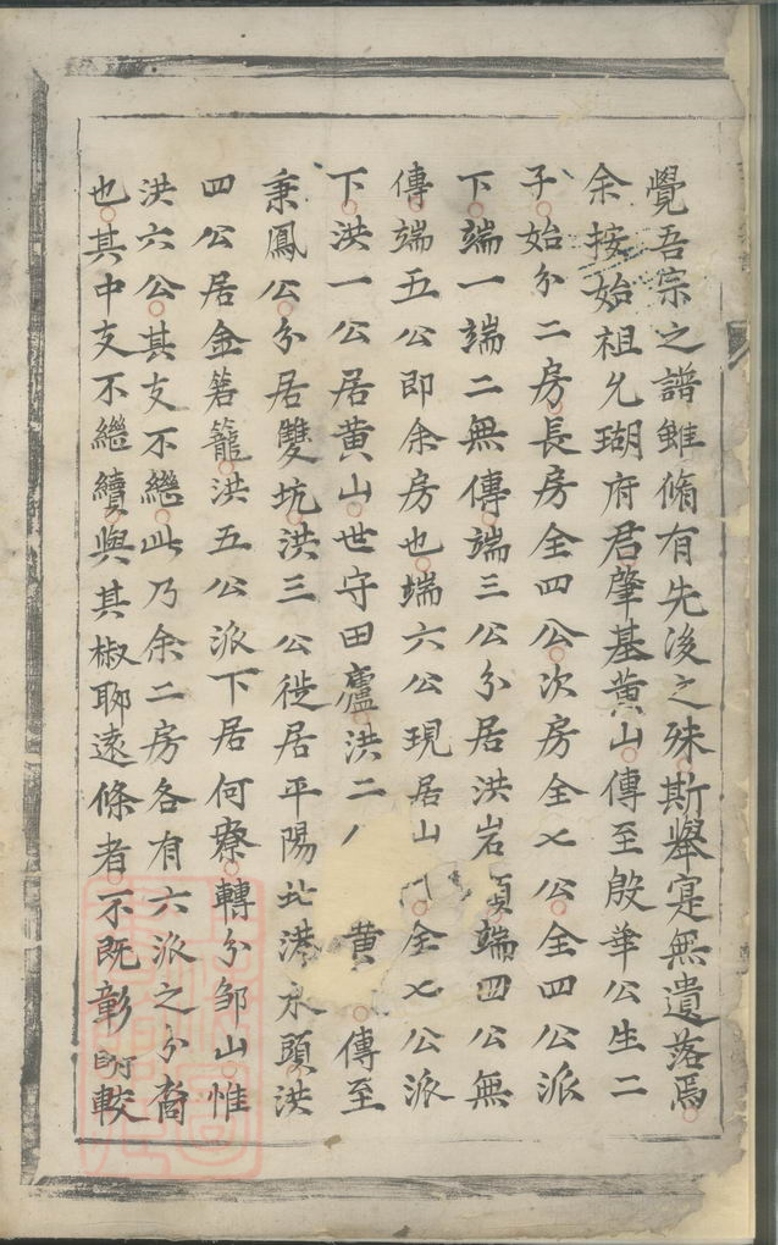 覺吾宗之譜雖脩有先後之殊斯舉寔無遺落焉
余按始祖允瑚府君肇基黄山傳至殷華公生二
子始分二房長房全四公次房全七公全四公派
下端一端二無傳端三公分居洪岩頂端四公無
傳端五公即余房也端六公現居山全七公派
下洪一公居黄山世守田廬洪二黄傳至
秉鳳公分居雙坑洪三公徙居平陽北港水頭洪
四公居金籠洪五公派下居何寮轉分邹山惟
洪六公其支不繼此乃余二房各有六派之分裔
也其中支不繼續與其椒聊遠條者不既彰明較